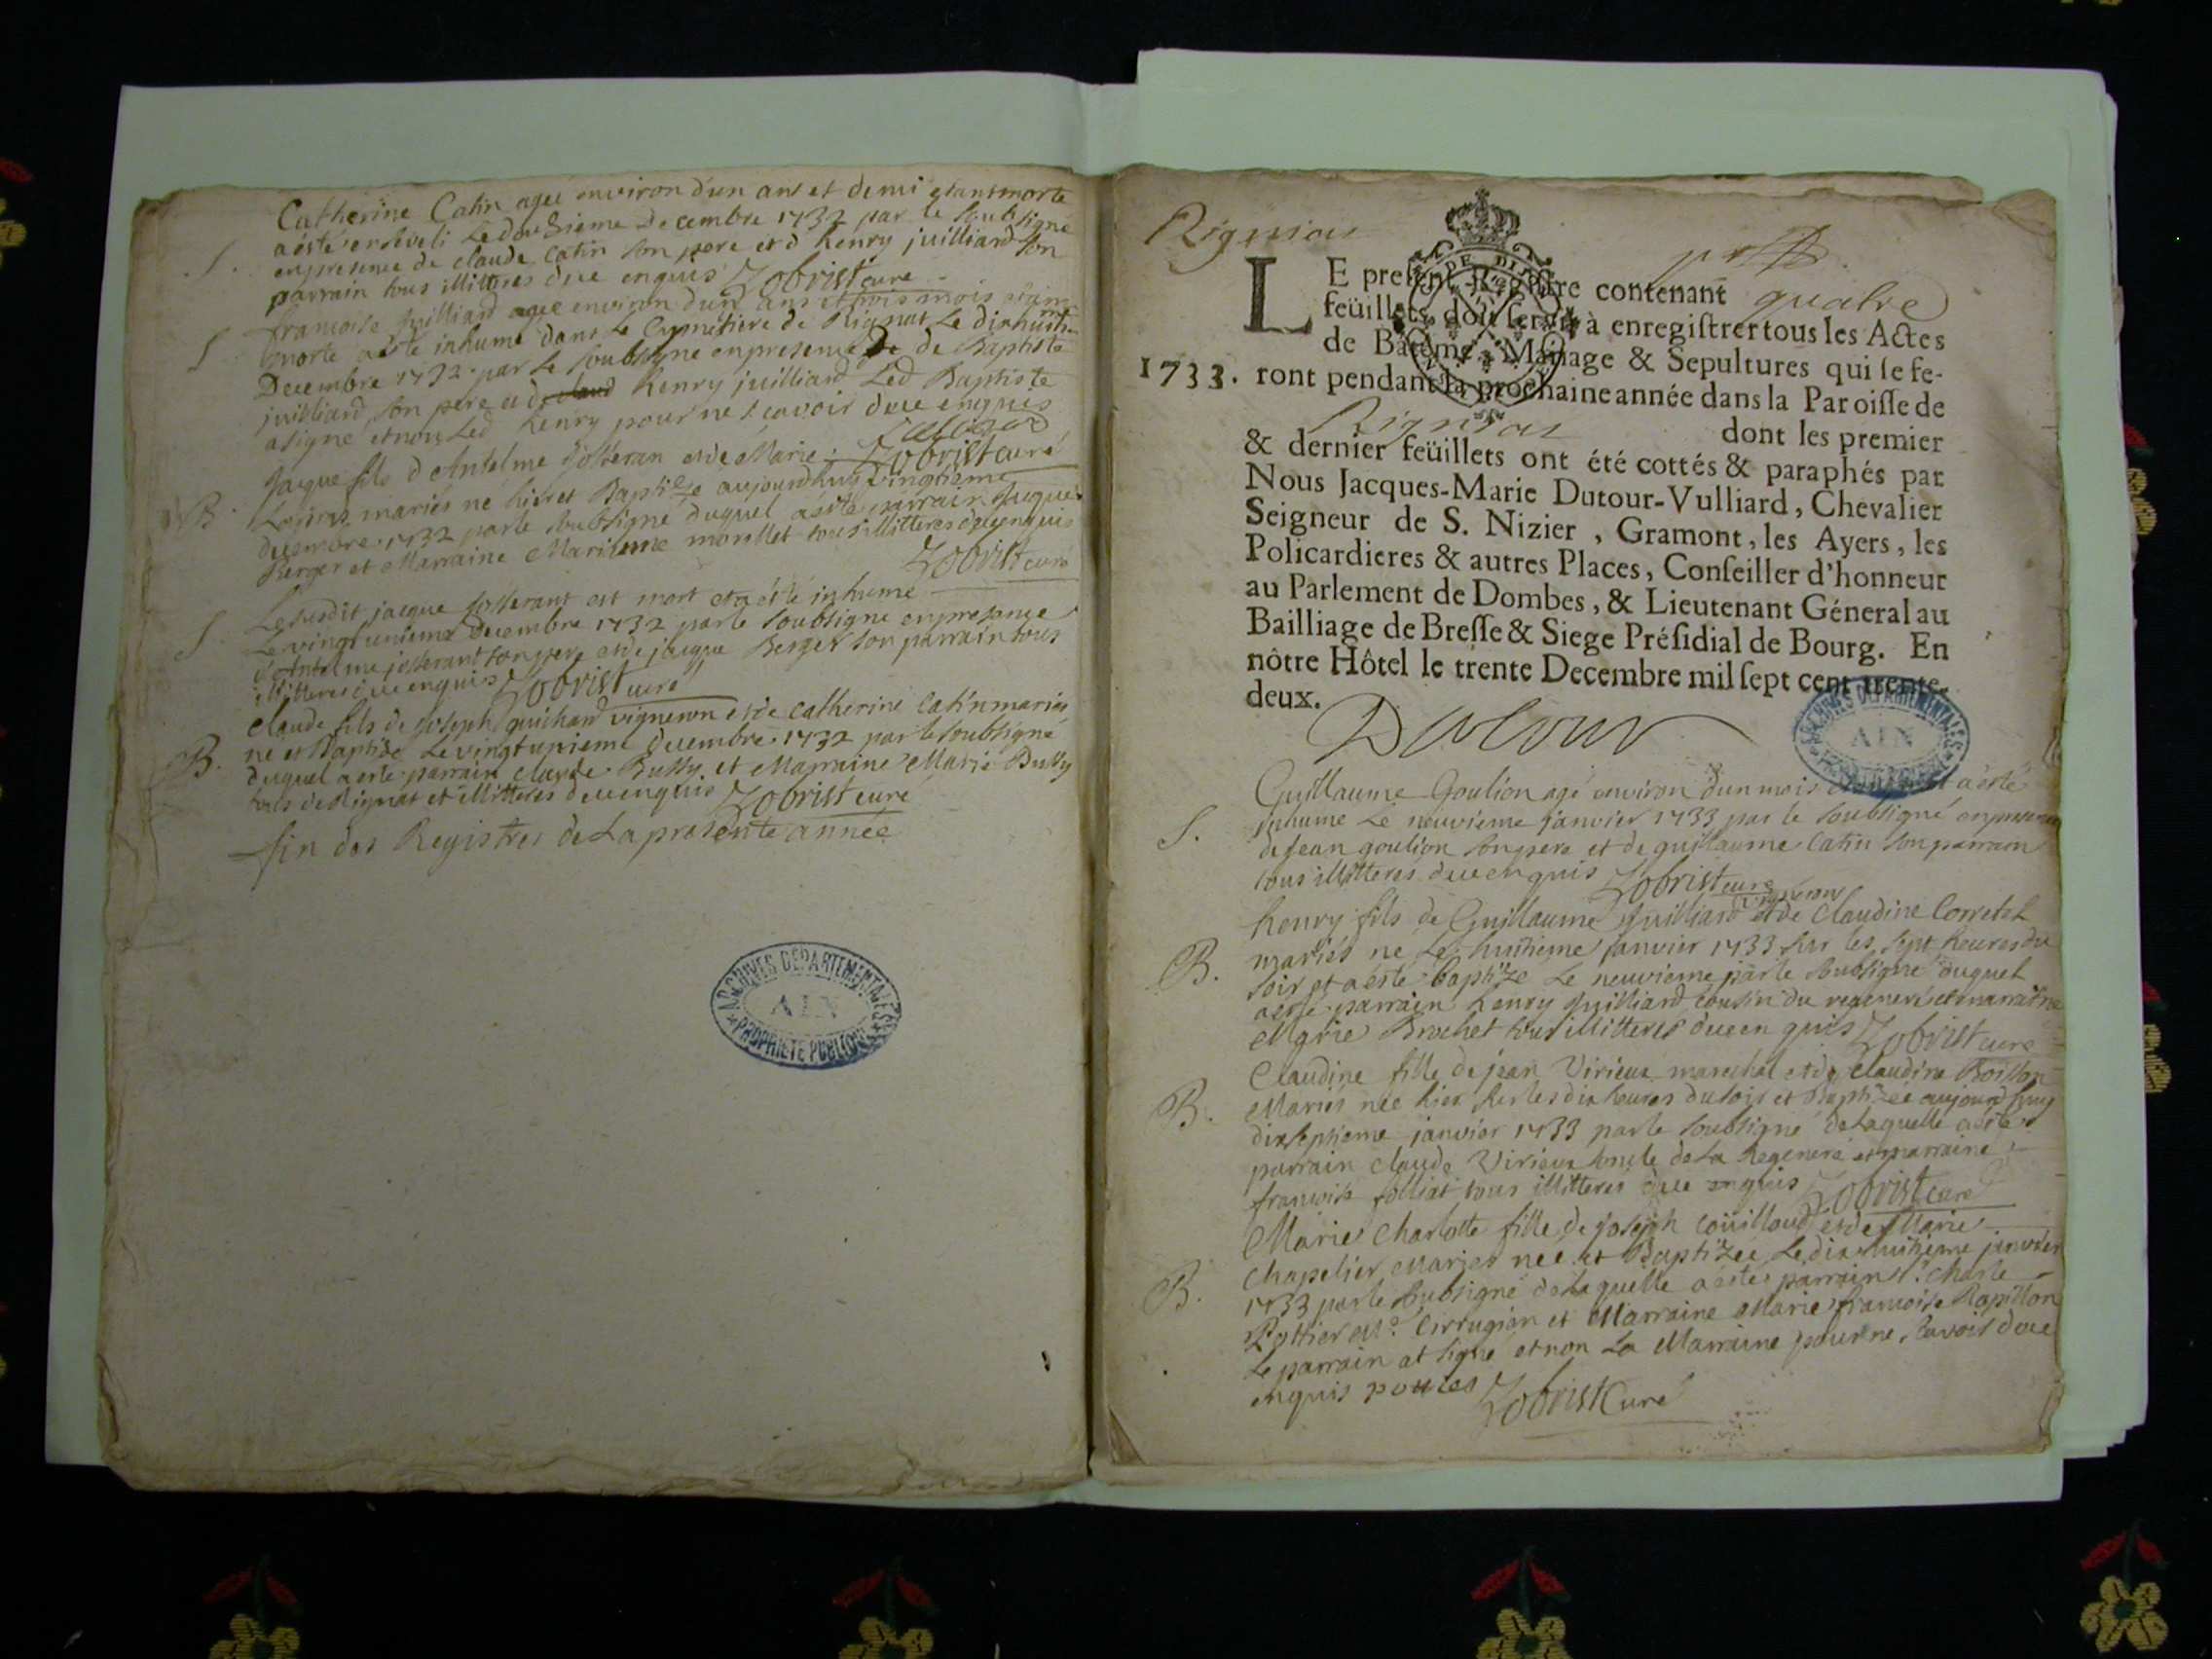 Catherine Catin agee environ d'un ans et demi etant morte
a esté enseveli Le douzieme Decembre 1732 par le soubsigné
S. en presence de claude Catin son pere et d henry juilliard son
parrain tous illitteres due enquis Zobrist cure
S. francoise juilliard agee environ d'un ans et trois mois etant
morte a este inhumé dans Le Cymetiere de Rignat Le dixhuit
Decembre 1732 par Le soubsigne en presence de de Baptiste
juilliard son pere et de henry juilliard Led Baptiste
a signe et non Led henry pour ne scavoir due enquis
Zobrist curé
Jaque fils d Antelme josseran et de Marie
B. mariés né hier et Baptize aujourdhuy vingtieme
decembre 1732 par le soubsigné duquel a esté parrain Jaque
Berger et Marraine morellet tous illitteres due enquis
Zobrist curé
S. Le susdit jacque josserant est mort et a été inhumé
Le vingtunieme Decembre 1732 par le soubsigne en presence
d'Antelme josserant son pere et de jacque Berger son parrain tous
illitteres due enquis Zobrist curé
claude fils de joseph guichard vigneron et de catherine Catin mariés
B. ne et Baptizé Le vingtunieme decembre 1732 par le soubsigné
duquel a esté parrain claude Bussy et Marraine Marie Bussy
tous de Rignat et illitteres due enquis Zobrist curé
fin des Registres de La presente année
ARCHIVES DEPARTEMENTALES
AIN
PROPRIETE PUBLIQUE
Rignat
LE present Registre contenant quatre
feüillets doit servir à enregistrer tous les Actes
de Batême, Mariage & Sepultures qui se fe-
1733. ront pendant la prochaine année dans la Paroisse de
Rignat dont les premier
& dernier feüillets ont été cottés & paraphés par
Nous Jacques-Marie Dutour-Vulliard, Chevalier
Seigneur de S. Nizier, Gramont, les Ayers, les
Policardieres & autres Places, Conseiller d'honneur
au Parlement de Dombes, & Lieutenant Géneral au
Bailliage de Bresse & Siege Présidial de Bourg. En
nôtre Hôtel le trente Decembre mil sept cent trente-
deux.
Dutour
ARCHIVES DEPARTEMENTALES
AIN
Guillaume Goulion agé environ d'un mois a esté
S. inhume Le neuvieme janvier 1733 par le soubsigné en presence
de jean goulion son pere et de guillaume Catin son parrain
tous illitteres due enquis Zobrist cure
vigneron
henry fils de Guillaume juilliard et de Claudine Corretel
B. mariés né Le huitieme janvier 1733 sur les sept heures du
soir et a esté baptize Le neuvieme par le soubsigné duquel
a esté parrain henry juilliard cousin du regeneré et marraine
Marie Brochet tous illitteres due enquis Zobrist cure
Claudine fille de jean Virieux marechal et de claudine Boisson
B. Mariés née hier sur les dix heures du soir et Baptizee aujourdhuy
dixseptieme janvier 1733 par le soubsigné de Laquelle a esté
parrain claude Virieux oncle de La Regeneré et marraine
francoise folliat tous illitteres due enquis Zobrist cure
Marie Charlotte fille de joseph coüilloud et de Marie
B. Chapelier Mariés née et Baptizée Le dixhuitieme janvier
1733 par le soubsigné de Laquelle a estes parrain Sr. charle
Pottier Me. Cirrugian et Marraine Marie francoise Papillon
Le parrain at signé et non La Marraine pour ne scavoir due
enquis pottier Zobrist Curé